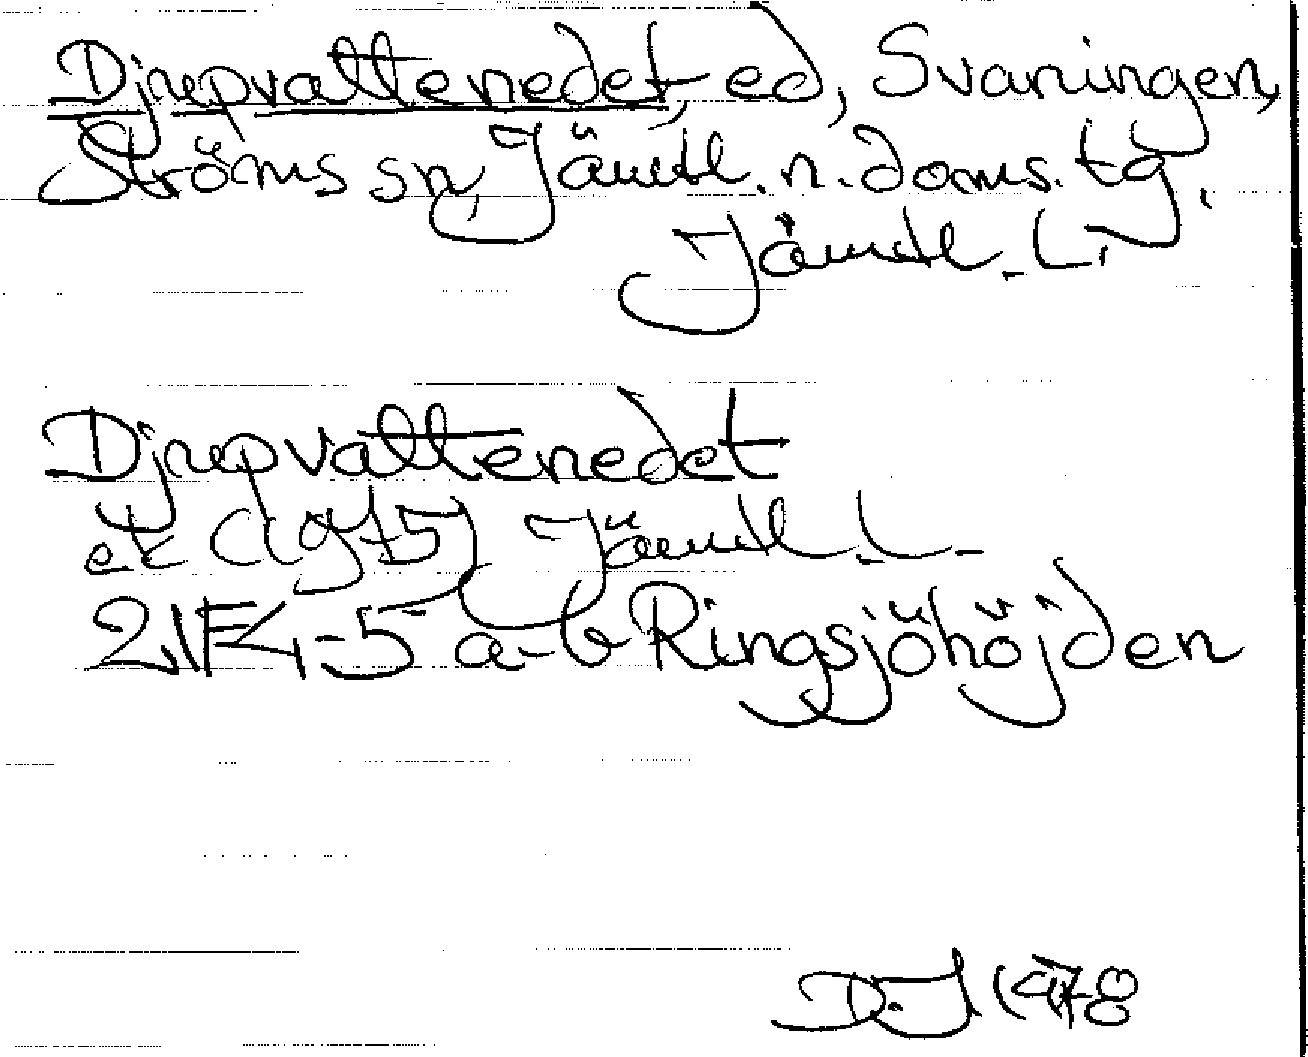 Djupvattenedet, ed, Svaningen,
Ströms sn, Jämtl. n. doms. tg.
Jämtl. L.
Djupvattenedet
ek (1975) Jämtl. L.
21F4-5 a-b Ringsjöhöjden
D.J 1978